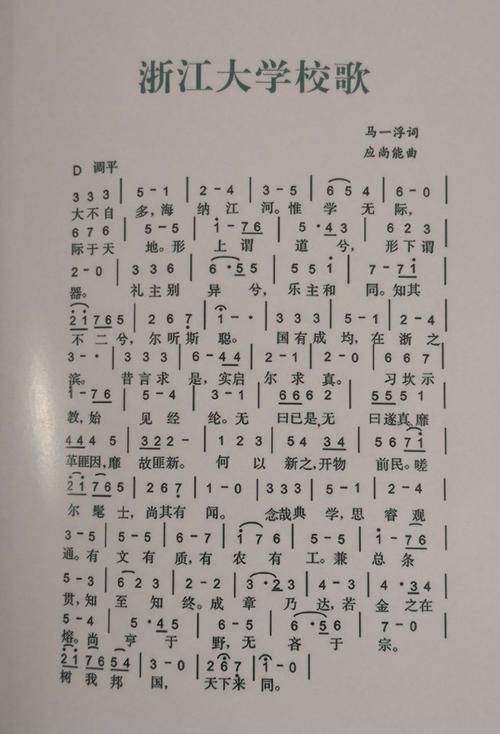 浙江大学校歌
马一浮词
应尚能曲
D 调平
3 3 3 | 5 - 1 | 2 - 4 | 3 - 5 | 6 5 4 | 6 - 0 |
大不自 多,海 纳 江 河。惟 学 无 际,
6 7 6 | 5 - 5 | i - 7 6 | 5 · 4 3 | 6 2 3 |
际于天 地。形 上 谓 道 兮, 形下谓
2 - 0 | 3 3 6 | 6 · 5 5 | 5 5 i | 7 - 7 i |
器。 礼主别 异 兮, 乐主和 同。知其
2 i 7 6 5 | 2 6 7 | i - 0 | 3 3 3 | 5 - 1 | 2 - 4 |
不 二 兮, 尔听斯 聪。 国有成 均,在 浙 之
3 - · | 3 3 3 | 6 - 4 4 | 2 - 1 | 2 - 0 | 6 6 7 |
滨。 昔言求 是,实启 尔 求 真。 习坎示
i - 7 6 | 5 - 4 | 3 - 1 | 6 6 6 2 | 5 5 5 1 |
教,始 见 经 纶。无 曰已是,无 曰遂真,靡
4 4 4 5 | 3 2 2 - | 1 2 3 | 5 4 3 4 | 5 6 7 i |
革匪因,靡 故匪新。 何 以 新之,开物 前民。嗟
2 i 7 6 5 | 2 6 7 | i - 0 | 3 3 3 | 5 - 1 | 2 - 4 |
尔 髦 士, 尚其有 闻。 念哉典 学,思 睿 观
3 - 5 | 5 - 5 | 6 - 7 | i 7 6 | 5 - 5 | i - 7 6 |
通。有 文 有 质,有 农 有 工。兼 总 条
5 - 3 | 6 2 3 | 2 - 2 | 3 · 2 3 | 4 - 3 | 4 · 3 4 |
贯,知 至 知 终。成 章 乃 达,若 金 之在
5 - 4 | 5 · 4 5 | 6 - 5 | 6 · 5 6 | 7 - 0 |
熔。尚 亨 于 野,无 吝 于 宗。
2 i 7 6 5 4 | 3 - 0 | 2 6 7 | i - 0 |
树 我 邦 国, 天下来 同。